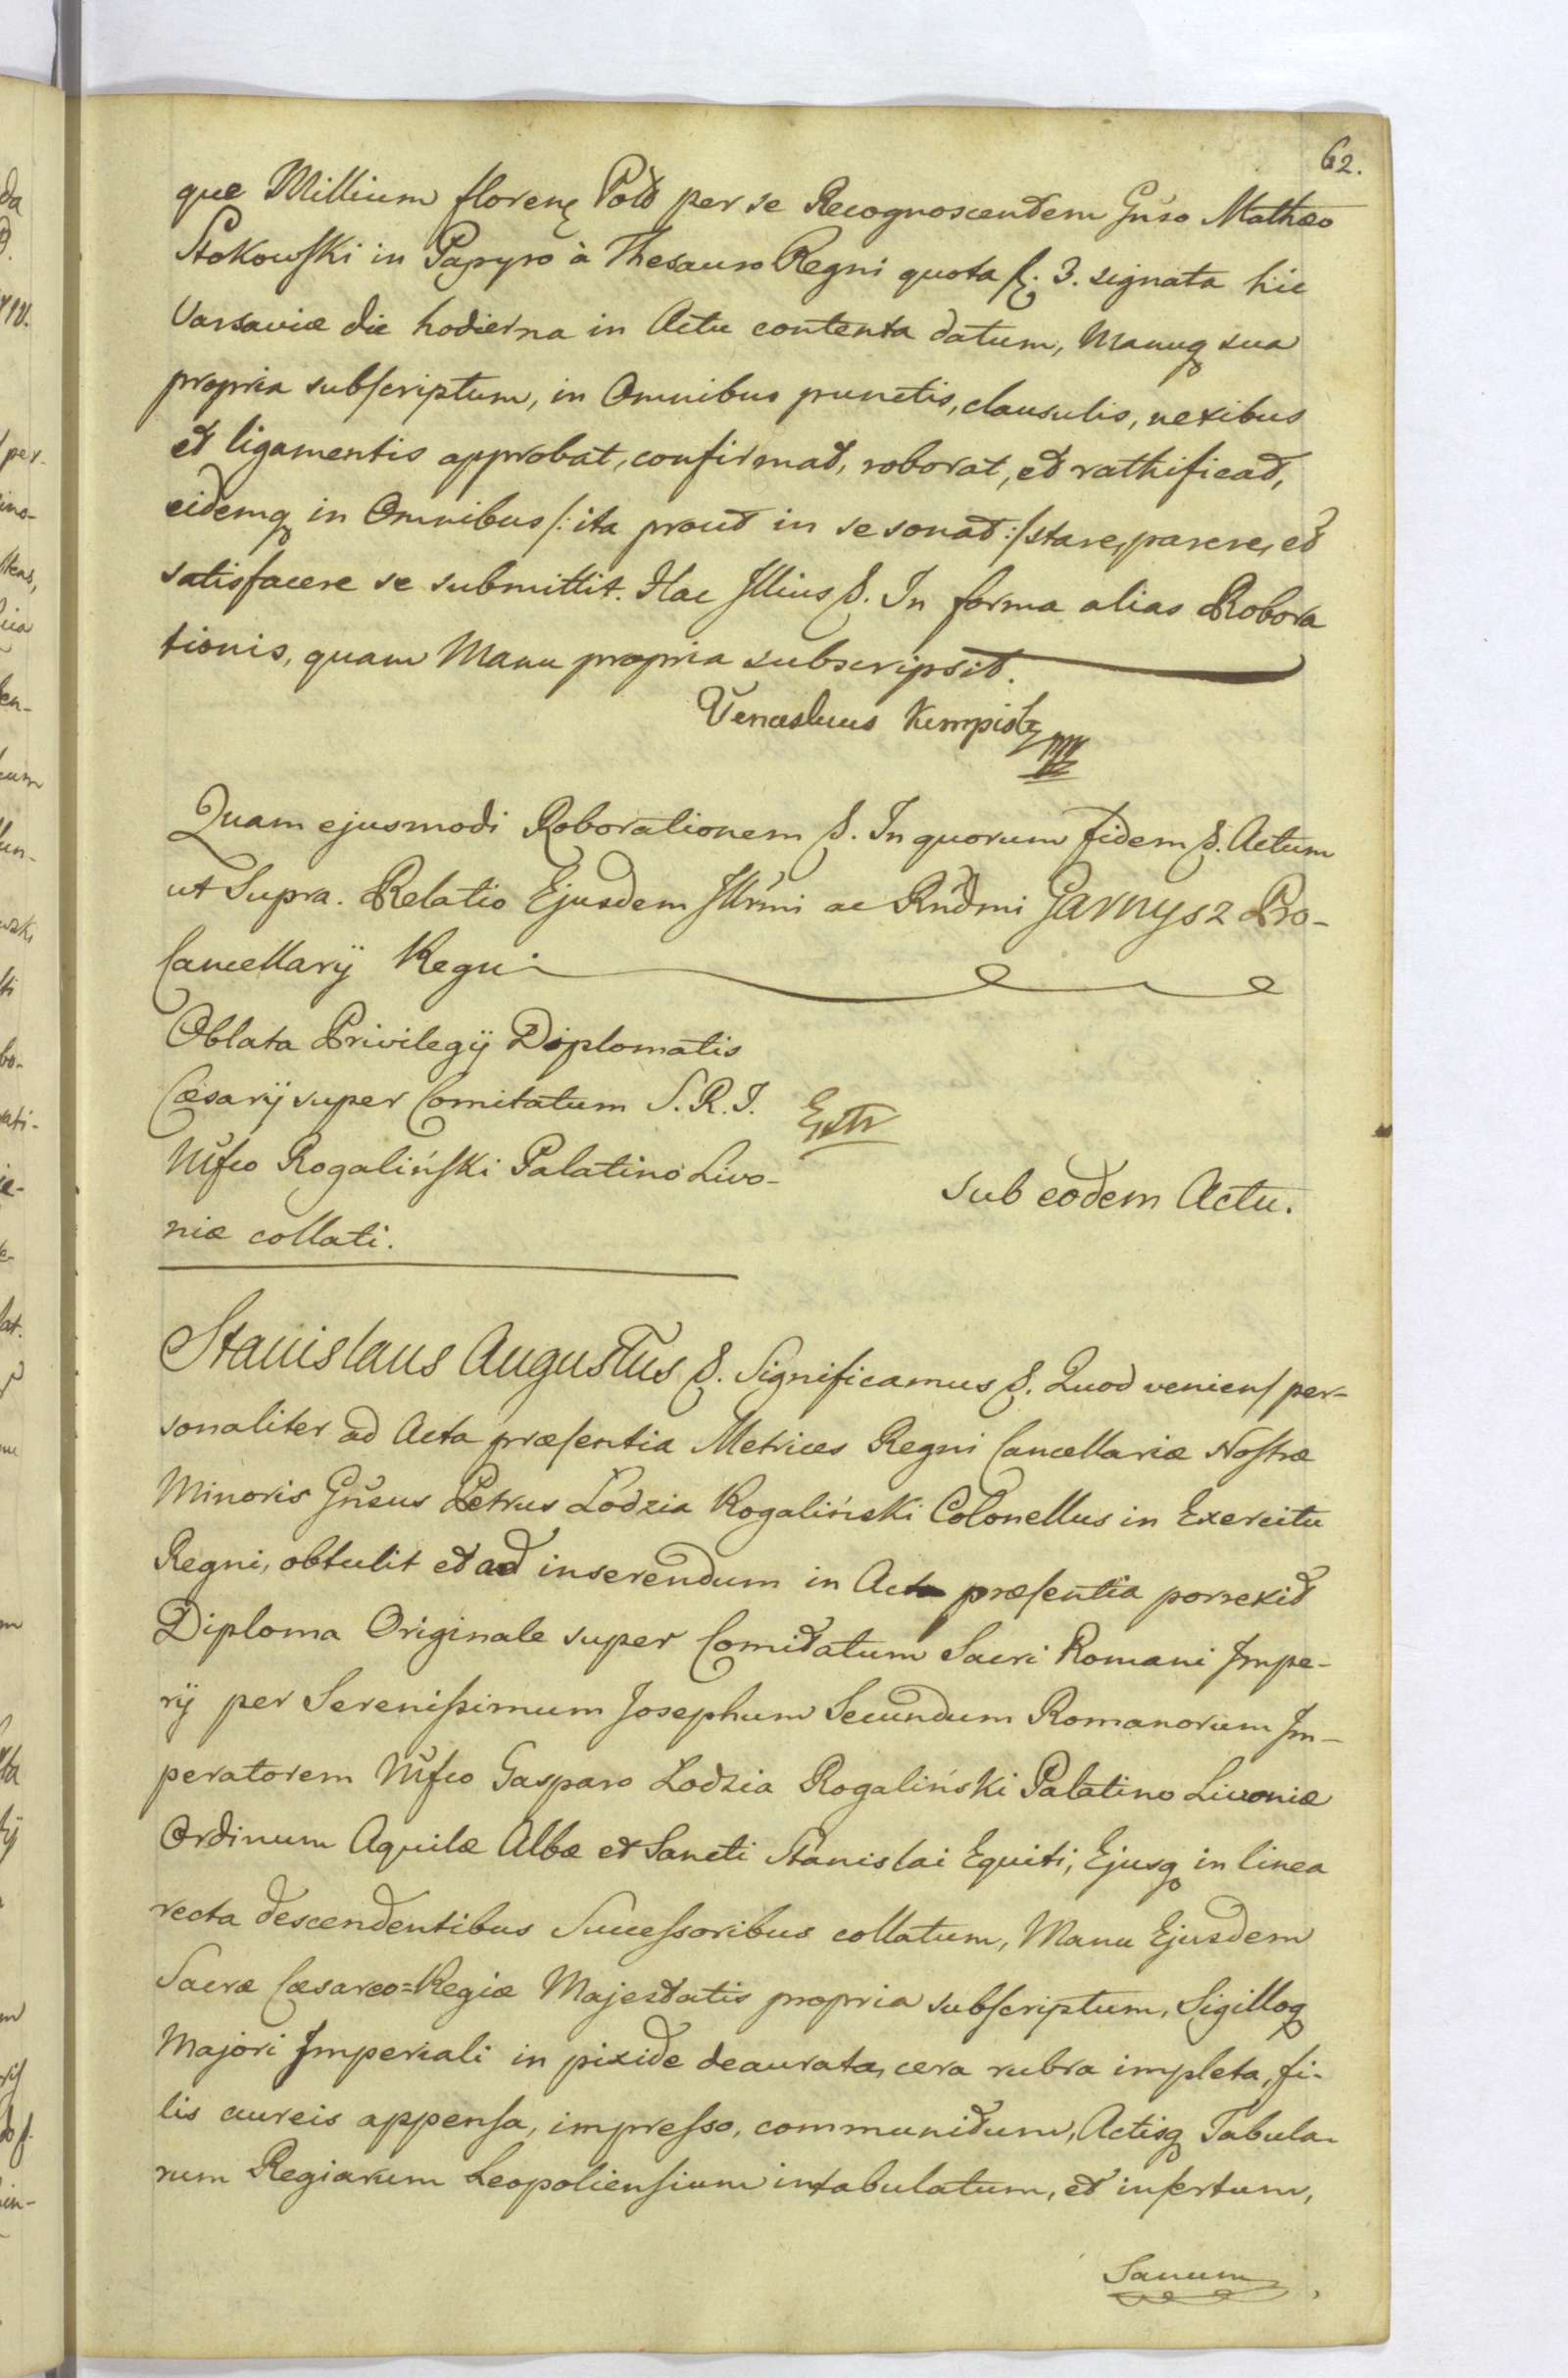 62.
que Millium floren Pold per se Recognoscendem Gnso Mathæo
Stokowski in Papyro à Thesauro Regni quota f. 3. signata hic
Varsaviæ die hodierna in Actu contenta datum, Manuq sua
propria subscriptum, in Omnibus punctis, clausulis, nexibus
et ligamentis approbat, confirmat, roborat, et rathificat,
eidemq in Omnibus /: ita prout in se sonat :/ stare, parere, et
satisfacere se submittit. Hac Illius &. In forma alias Robora
tionis, quam Manu propria subscripsit.
Venceslaus Kempisty mp
Quam ejusmodi Roborationem &. In quorum fidem &. Actum
ut Supra. Relatio Ejusdem Illrmi ac Rndmi Garnysz Pro-
Cancellarij Regni
Oblata Privilegij Diplomatis
Cæsarij super Comitatum S. R. I.
Mfco Rogaliński Palatino Livo-
niæ collati.
Extr
sub eodem Actu.
Stanislaus Augustus &. Significamus &. Quod veniens per-
sonaliter ad Acta præsentia Metrices Regni Cancellariæ Nostræ
Minoris Gnsus Petrus Łodzia Rogaliński Colonellus in Exercitu
Regni, obtulit et ad inserendum in Acta præsentia porrexit
Diploma Originale super Comitatum Sacri Romani Impe-
rij per Serenissimum Josephum Secundum Romanorum Im-
peratorem Mfco Gasparo Lodzia Rogaliński Palatino Livoniæ
Ordinum Aquilæ Albæ et Sancti Stanislai Equiti, Ejusq in linea
recta descendentibus Successoribus collatum, Manu Ejusdem
Sacræ Cæsareo=Regiæ Majestatis propria subscriptum, Sigilloq
Majori Imperiali in pixide deaurata, cera rubra impleta, fi-
lis aureis appensa, impresso, communitum, Actisq Tabula-
rum Regiarum Leopoliensium intabulatum, et insertum,
Sanum